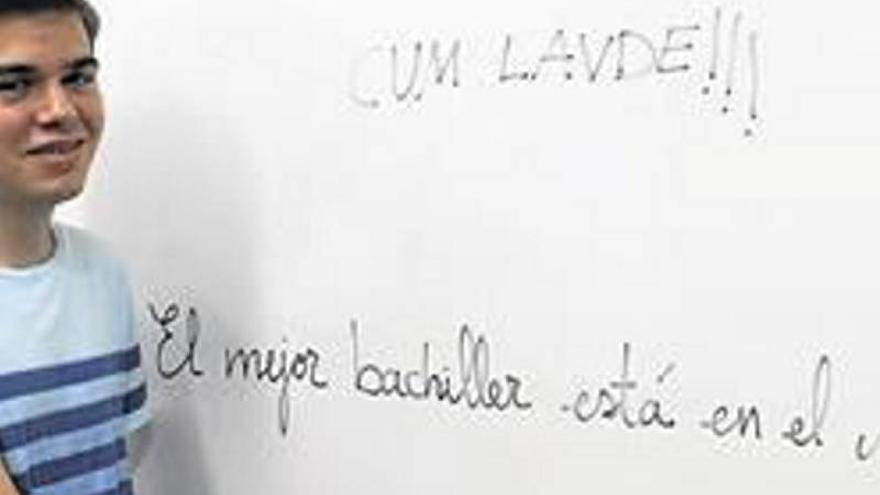 CUM LAVDE!!!
El mejor bachiller está en el